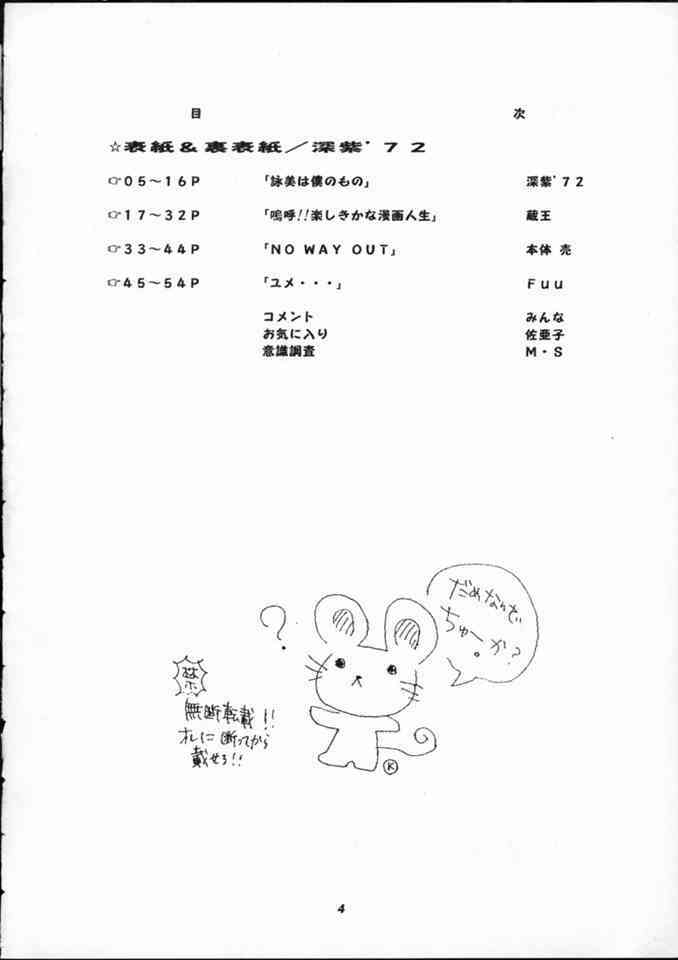 目 次
☆表紙＆裏表紙／深紫'７２
☞０５～１６Ｐ 「詠美は僕のもの」 深紫'７２
☞１７～３２Ｐ 「嗚呼!!楽しきかな漫画人生」 蔵王
☞３３～４４Ｐ 「ＮＯ ＷＡＹ ＯＵＴ」 本体 売
☞４５～５４Ｐ 「ユメ・・・」 Ｆｕｕ
コメント みんな
お気に入り 佐亜子
意識調査 Ｍ・Ｓ
だめなりで
ちゅーか?
?
禁
無断転載!!
オレに断ってから
載せろ!!
K
4